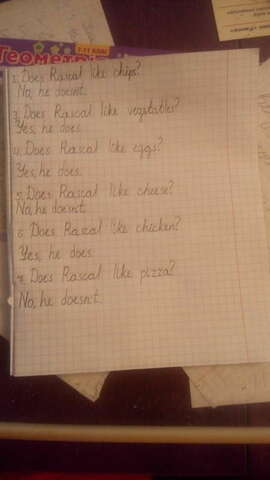 7-11 КЛАС
Геометрія
1. Does Rascal like chips?
No, he doesnt.
3. Does Rascal like vegetables?
Yes, he does.
4. Does Rascal like eggs?
Yes, he does.
5. Does Rascal like cheese?
No, he doesn't.
6. Does Rascal like chicken?
Yes, he does.
7. Does Rascal like pizza?
No, he doesn't.